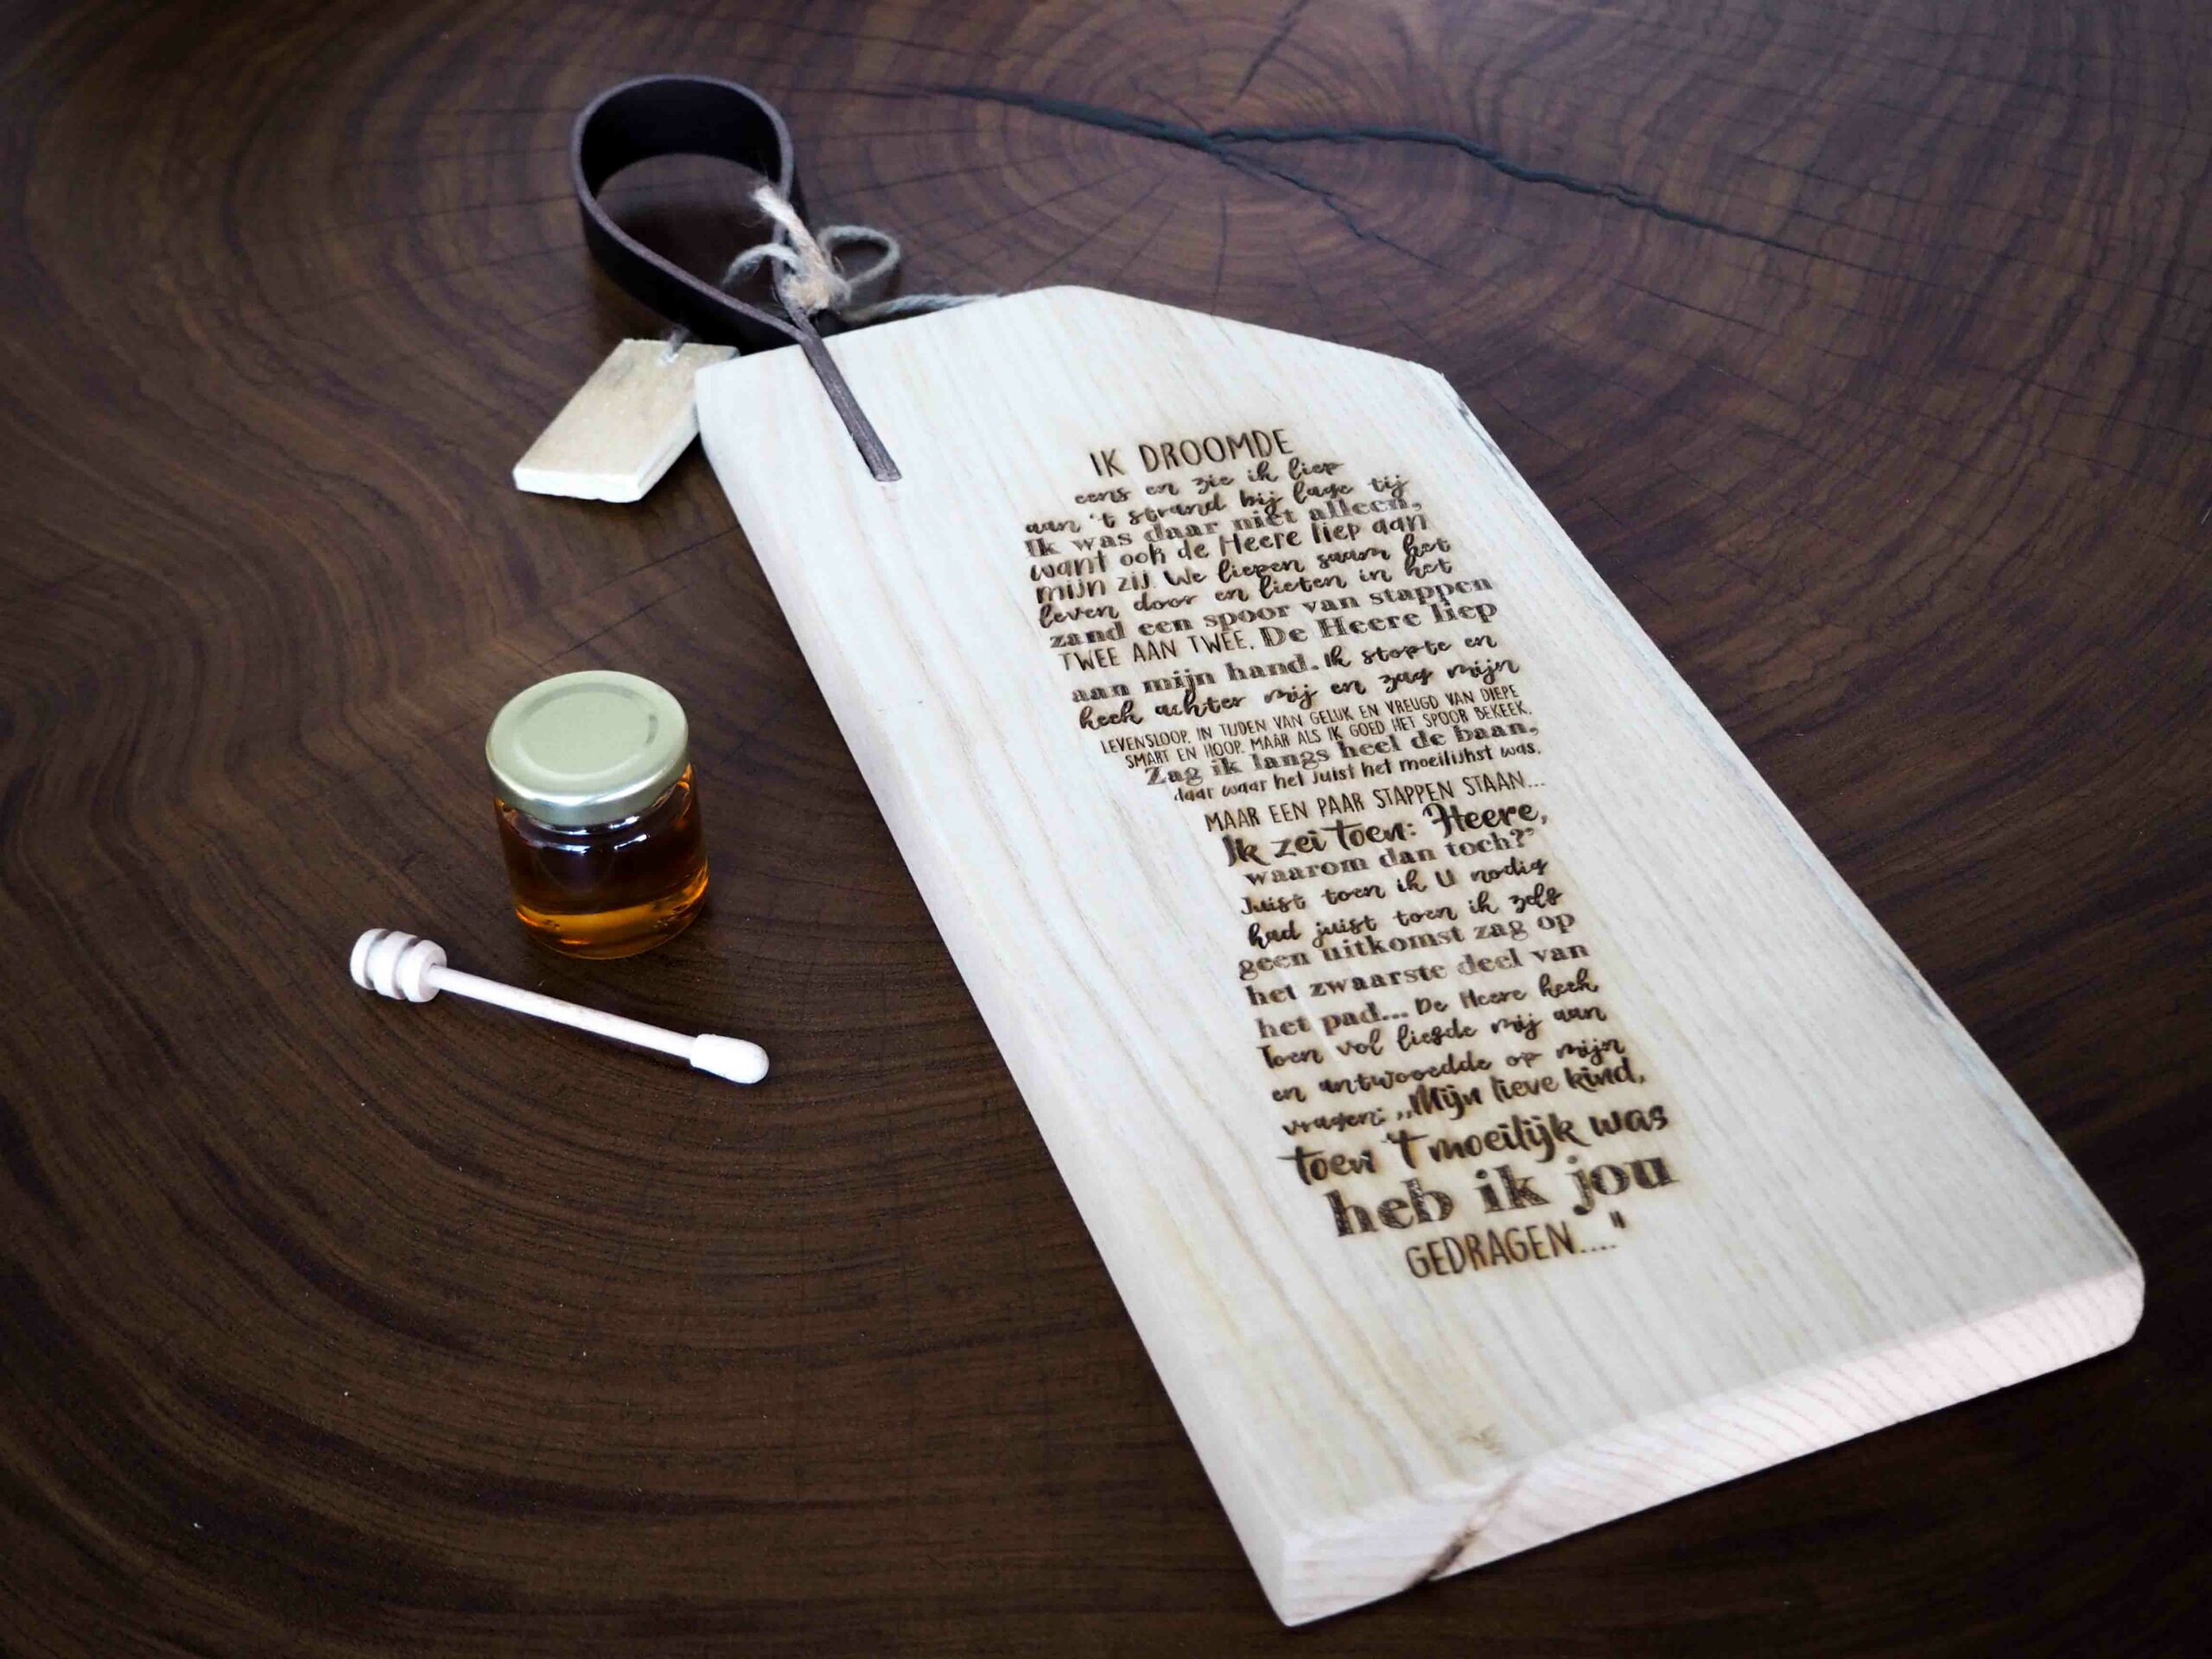 IK DROOMDE
eens en zie ik liep
aan 't strand bij lage tij
Ik was daar niet alleen,
want ook de Heere liep aan
mijn zij. We liepen saam het
leven door en lieten in het
zand een spoor van stappen
TWEE AAN TWEE. De Heere liep
aan mijn hand. Ik stopte en
keek achter mij en zag mijn
LEVENSLOOP. IN TIJDEN VAN GELUK EN VREUGD VAN DIEPE
SMART EN HOOP. MAAR ALS IK GOED HET SPOOR BEKEEK,
Zag ik langs heel de baan,
daar waar het juist het moeilijkst was,
MAAR EEN PAAR STAPPEN STAAN...
Ik zei toen: Heere,
waarom dan toch?"
Juist toen ik U nodig
had juist toen ik zelf
geen uitkomst zag op
het zwaarste deel van
het pad... De Heere keek
Toen vol liefde mij aan
en antwoordde op mijn
vragen: „Mijn lieve kind,
toen 't moeilijk was
heb ik jou
GEDRAGEN...."